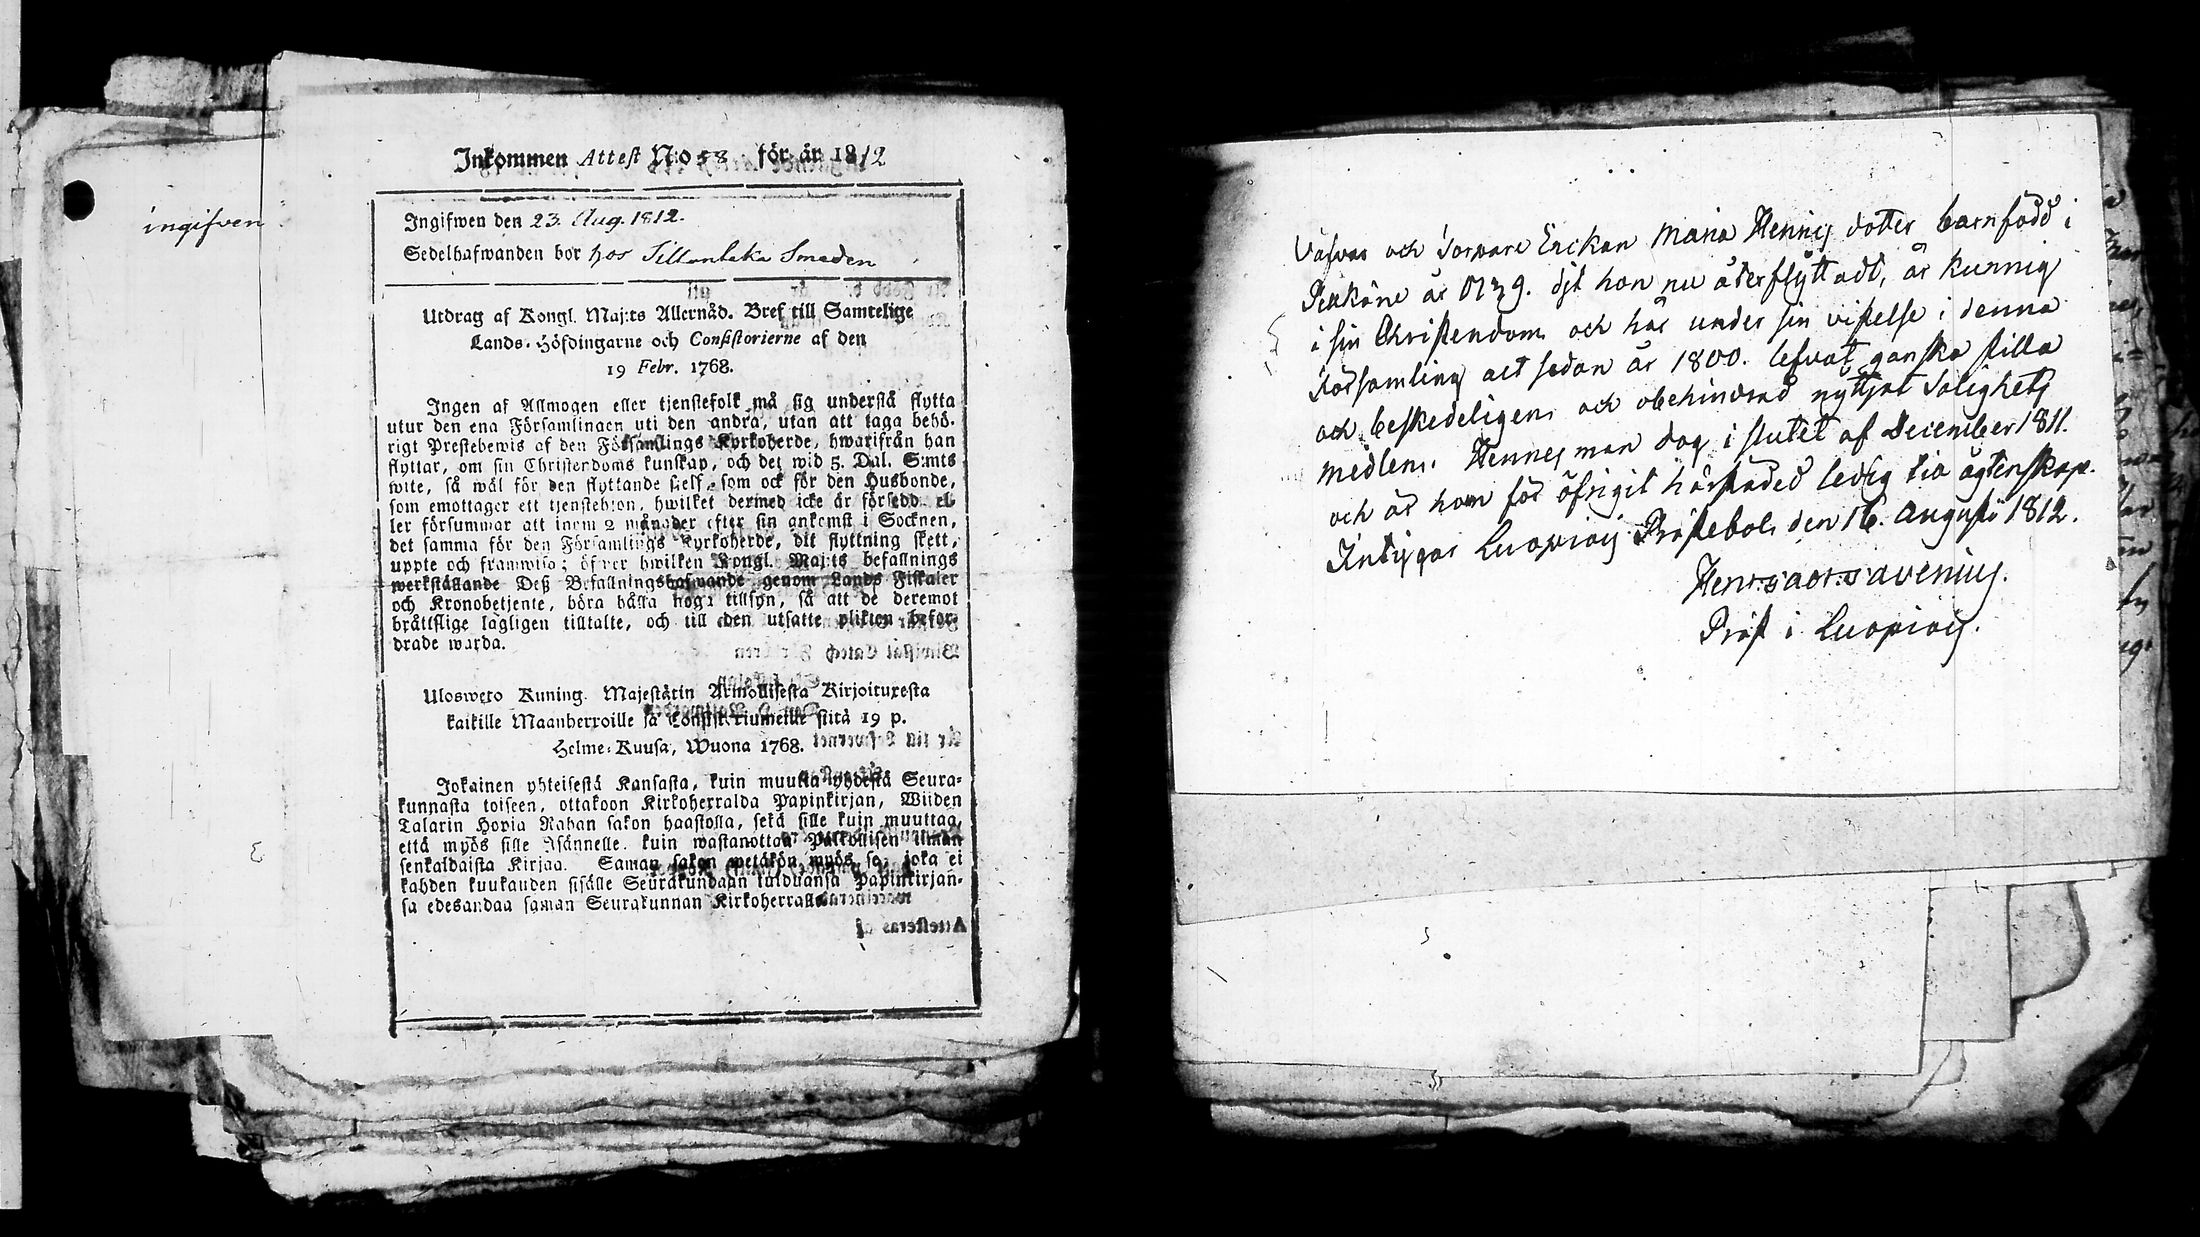 Inkommen Attest N:o 58 för år 1812
Ingifwen den 23. Aug. 1812.
Sedelhafwanden bor hos Sillanlaka Smeden
ingifven
Utdrag af Kongl. Maj:ts Allernåd. Bref till Samtelige
Lands-Höfdingarne och Consistorierne af den
19 Febr. 1768.
Ingen af Allmogen eller tjenstefolk må sig understå flytta
utur den ena Församlingen uti den andra, utan att taga behö-
rigt Prestebewis af den Församlings Kyrkoherde, hwarifrån han
flyttar, om sin Christendoms kunskap, och det wid 5. Dal. S:mts
wite, så wäl för den flyttande sjelf, som ock för den Husbonde,
som emottager ett tjenstehjon, hwilket dermed icke är försedd, el-
ler försummar att inom 2 månader efter sin ankomst i Socknen,
det samma för den Församlings Kyrkoherde, dit flyttning skett,
uppte och framwisa; öfwer hwilken Kongl. Maj:ts befallnings
werkställande Deß Befallningshafwande genom Lands Fiskaler
och Kronobetjente, böra hålla noga tillsyn, så att de deremot
bråttslige lagligen tilltalte, och till den utsatte plikten befor-
drade warda.
Ulosweto Kuning. Majestätin Armollisesta Kirjoituxesta
kaikille Maanherroille ja Consistoriumeille siitä 19 p.
Helme-Kuusa, Wuona 1768.
Jokainen yhteisestä Kansasta, kuin muutta yhdestä Seura-
kunnasta toiseen, ottakoon Kirkoherralda Papinkirjan, Wiiden
Talarin Hopia Rahan sakon haastolla, sekä sille kuin muuttaa,
että myös sille Isännelle, kuin wastanottaa Palkollisen ilman
senkaldaista Kirjaa. Saman sakon wetäkön myös se, joka ei
kahden kuukauden sisälle Seurakundaan tulduansa Papinkirjan-
sa edesandaa saman Seurakunnan Kirkoherralle.
Attesteras af
Erickan Maria Hennes dotter barnfödd i
Pelkäne år 1779. dit hon nu återflyttadt, är kunnig
i sin Christendom och har under sin vistelse i denna
Församling alt sedan år 1800. lefvat ganska stilla
och beskedeligen och obehindrad nyttjat Salighets
medlen. Hennes man dog i slutet af December 1811.
och är hon för öfrigit härstädes ledig til ägtenskap.
Intygar Luopiois Prästebol den 16. Augusti 1812.
Präst i Luopiois.